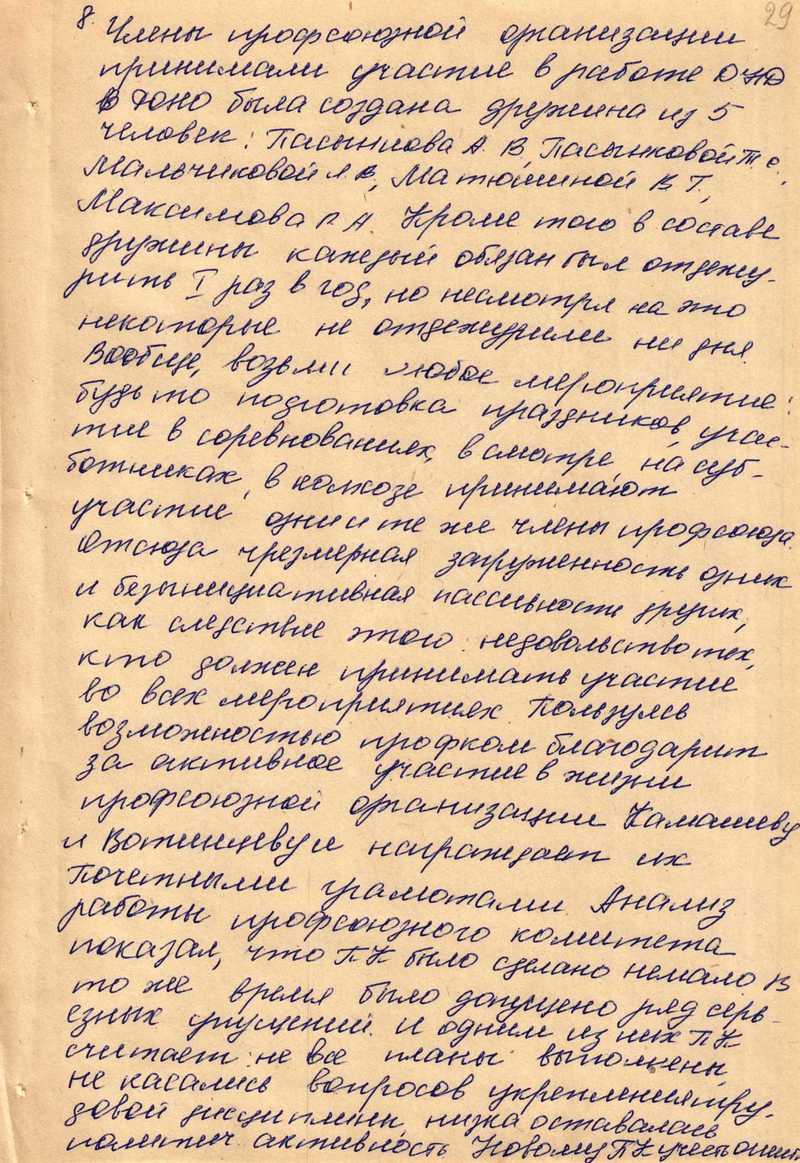 29
8. Члены профсоюзной организации
принимали участие в работе ДНД
В ЮНО была создана дружина из 5
человек: Пасынкова А. В, Пасынковой Т. С.,
Мальчиковой Л В, Матюшиной В Т,
Максимова П А. Кроме того в составе
дружины каждый обязан был отдежу-
рить I раз в год, но несмотря на это
некоторые не отдежурили ни дня.
Вообще, возьми любое мероприятие:
будь то подготовка праздников, учас-
тие в соревнованиях, в смотре, на суб-
ботниках, в колхозе принимают
участие одни и те же члены профсоюза.
Отсюда чрезмерная загруженность одних
и безынициативная пассивность других,
как следствие этого недовольство тех,
кто должен принимать участие
во всех мероприятиях. Пользуясь
возможностью профком благодарит
за активное участие в жизни
профсоюзной организации Камашеву
и Вотинцеву и награждает их
Почетными грамотами. Анализ
работы профсоюзного комитета
показал, что ПК было сделано немало В
то же время было допущено ряд серь-
езных упущений. И одним из них ПК
считает: не все планы выполнены,
не касались вопросов укрепления тру-
довой дисциплины, низка оставалась
политич. активность Новому ПК учесть